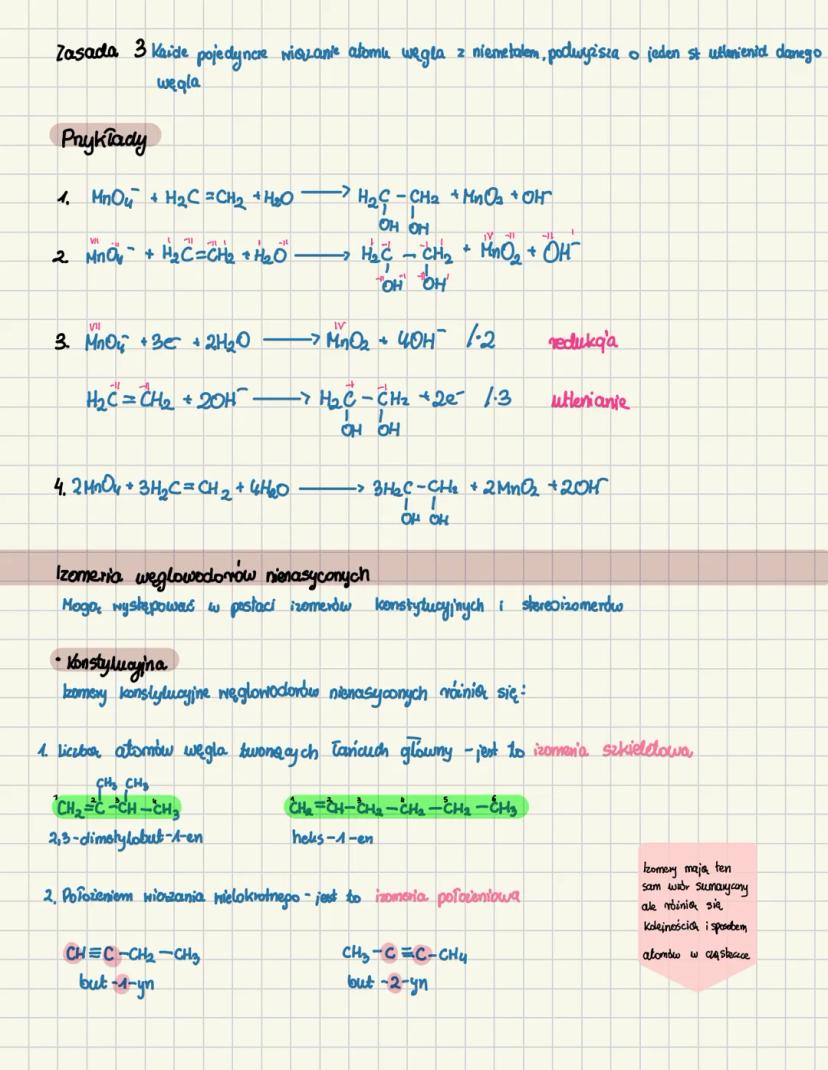 Zasada 3 Każde pojedyncze wiązanie atomu węgla z niemetalem, podwyższa o jeden st utlenienia danego
węgla
Przykłady
1. MnO₄⁻ + H₂C = CH₂ + H₂O ⟶ H₂C – CH₂ + MnO₂ + OH⁻
OH OH
VII -II I -II -II I I -II I -I -I I IV -II -II I
2. MnO₄⁻ + H₂C = CH₂ + H₂O ⟶ H₂C – CH₂ + MnO₂ + OH⁻
-II OH I -II OH I
VII IV
3. MnO₄⁻ + 3e⁻ + 2H₂O ⟶ MnO₂ + 4OH⁻ /·2 redukcja
-II -II -I -I
H₂C = CH₂ + 2OH⁻ ⟶ H₂C – CH₂ + 2e⁻ /·3 utlenianie
OH OH
4. 2MnO₄ + 3H₂C = CH₂ + 4H₂O ⟶ 3H₂C – CH₂ + 2MnO₂ + 2OH⁻
OH OH
Izomeria węglowodorów nienasyconych
Mogą występować w postaci izomerów konstytucyjnych i stereoizomerów
• Konstytucyjna
Izomery konstytucyjne węglowodorów nienasyconych różnią się:
1. Liczbą atomów węgla tworzących łańcuch główny – jest to izomeria szkieletowa
CH₃ CH₃
1 2 3 4
CH₂ = C – CH – CH₃
2,3-dimetylobut-1-en
1 2 3 4 5 6
CH₂ = CH – CH₂ – CH₂ – CH₂ – CH₃
heks-1-en
2. Położeniem wiązania wielokrotnego – jest to izomeria położeniowa
CH ≡ C – CH₂ – CH₃
but-1-yn
CH₃ – C ≡ C – CH₄
but-2-yn
Izomery mają ten
sam wzór sumaryczny
ale różnią się
kolejnością i sposobem
atomów w cząsteczce